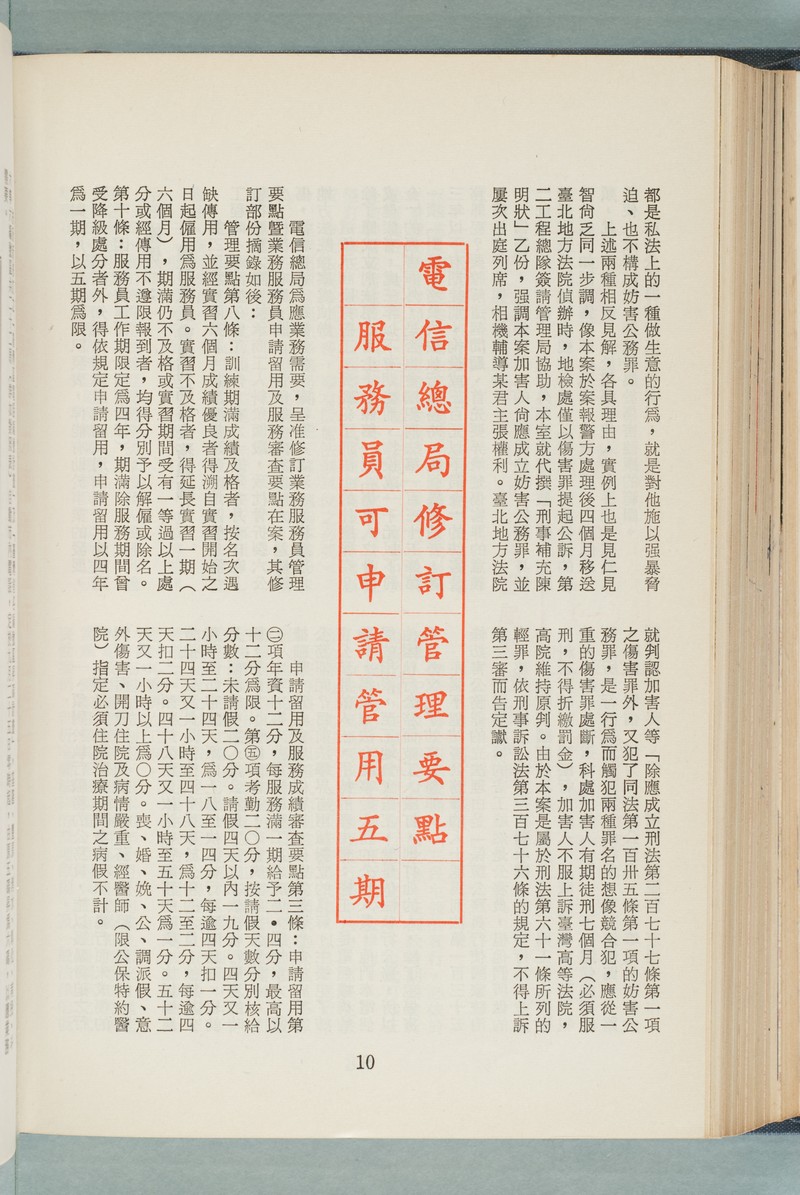 都是私法上的一種做生意的行爲，就是對他施以强暴脅
迫、也不構成妨害公務罪。
上述兩種相反見解，各具理由，實例上也是見仁見
智尙乏同一步調，像本案於案報警方處理後四個月移送
臺北地方法院偵辦時，地檢處僅以傷害罪提起公訴，第
二工程總隊簽請管理局協助，本室就代撰「刑事補充陳
明狀」乙份，强調本案加害人尙應成立妨害公務罪，並
屢次出庭列席，相機輔導某君主張權利。臺北地方法院
就判認加害人等「除應成立刑法第二百七十七條第一項
之傷害罪外，又犯了同法第一百卅五條第一項的妨害公
務罪，是一行爲而觸犯兩種罪名的想像競合犯，應從一
重的傷害罪處斷，科處加害人有期徒刑七個月（必須服
刑，不得折繳罰金），加害人不服上訴臺灣高等法院，
高院維持原判。由於本案是屬於刑法第六十一條所列的
輕罪，依刑事訴訟法第三百七十六條的規定，不得上訴
第三審而告定讞。
電信總局修訂管理要點
服務員可申請管用五期
電信總局爲應業務需要，呈准修訂業務服務員管理
要點暨業務服務員申請留用及服務審查要點在案，其修
訂部份摘錄如後：
管理要點第八條：訓練期滿成績及格者，按名次遇
缺傳用，並經實習六個月成績優良者得溯自實習開始之
日起僱用爲服務員。實習不及格者，得延長實習一期（
六個月），期滿仍不及格或實習期間受有一等過以上處
分或經傳用不遵限報到者，均得分別予以解僱或除名。
第十條：服務員工作期限定爲四年，期滿除服務期間曾
受降級處分者外，得依規定申請留用，申請留用以四年
爲一期，以五期爲限。
申請留用及服務成績審查要點第三條：申請留用第
㊁項年資十二分，每服務滿一期給予二•四分，最高以
十二分爲限。第㊄項考勤二〇分，按請假天數分別核給
分數：未請假二〇分。請假四天以內一九分。四天又一
小時至二十四天，爲一八至一四分，每逾四天扣一分。
二十四天又一小時至四十八天，爲十二至二分，每逾四
天扣二分。四十八天又一小時至五十天爲一分。五十二
天又一小時以上爲〇分。喪、婚、娩、公、調派假、意
外傷害、開刀住院及病情嚴重、經醫師（限公保特約醫
院）指定必須住院治療期間之病假不計。
10